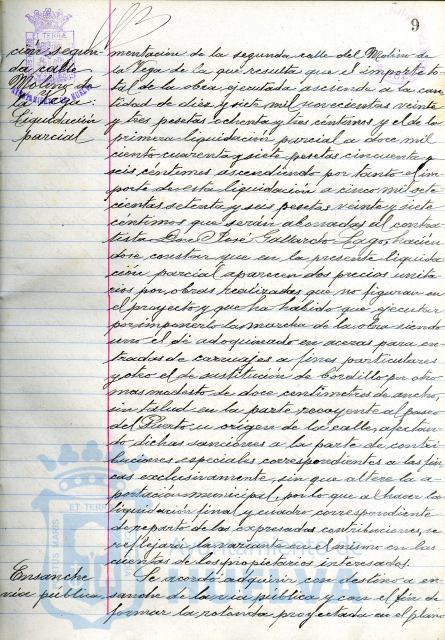 9
ción segun-
da calle
Molino de
la Vega:
Liquidación
parcial
mentación de la segunda calle del Molino de
la Vega de la que resulta que el importe to-
tal de la obra ejecutada asciende a la can-
tidad de diez y siete mil novecientas veinte
y tres pesetas ochenta y tres céntimos y el de la
primera liquidación parcial a doce mil
ciento cuarenta y siete pesetas cincuenta y
seis céntimos ascendiendo por tanto el im-
porte de esta liquidación a cinco mil sete-
cientas setenta y seis pesetas veinte y siete
céntimos que serán abonadas al contra-
tista Don José Gallardo Lago, hacién-
dose constar que en la presente liquida-
ción parcial aparecen dos precios unita-
rios por obras realizadas que no figuran en
el proyecto y que ha habido que ejecutar
por imponerlo la marcha de la obra siendo
uno el de adoquinado en aceras para en-
tradas de carruajes a fines particulares
y otro el de sustitución de bordillo por otro
mas modesto de doce centímetros de ancho,
sin talud en la parte recayente al paseo
del Puerto u origen de la calle, afectan-
do dichas sanciones a la parte de contri-
buciones especiales correspondientes a las fin-
cas exclusivamente, sin que altere la a-
portación municipal, por lo que al hacer la
liquidación final y cuadro correspondiente
de reparto de las expresadas contribuciones, se
reflejará la variante en el mismo en las
cuentas de los propietarios interesados.
Ensanche
vía pública
Se acordó adquirir con destino a en-
sanche de la vía pública y con el fin de
formar la rotonda proyectada en el plano